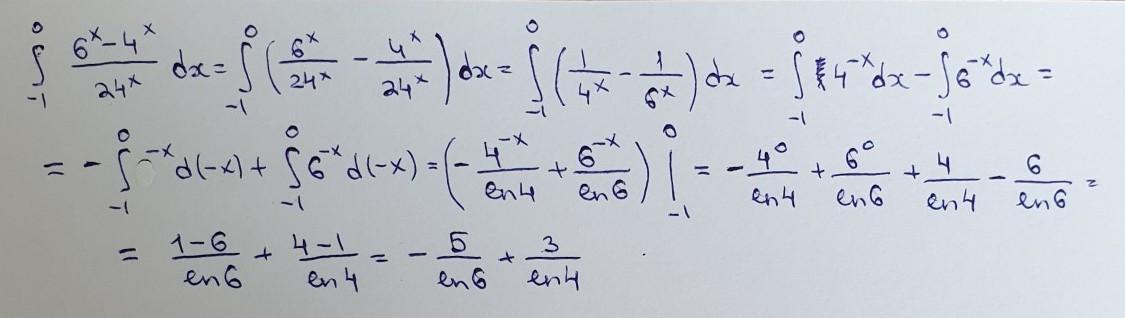 ∫_{-1}^{0} \frac{6^x - 4^x}{24^x} dx = ∫_{-1}^{0} (\frac{6^x}{24^x} - \frac{4^x}{24^x}) dx = ∫_{-1}^{0} (\frac{1}{4^x} - \frac{1}{6^x}) dx = ∫_{-1}^{0} 4^{-x} dx - ∫_{-1}^{0} 6^{-x} dx =
= - ∫_{-1}^{0} ^{-x} d(-x) + ∫_{-1}^{0} 6^{-x} d(-x) = (- \frac{4^{-x}}{ln4} + \frac{6^{-x}}{ln6}) |_{-1}^{0} = - \frac{4^0}{ln4} + \frac{6^0}{ln6} + \frac{4}{ln4} - \frac{6}{ln6} =
= \frac{1-6}{ln6} + \frac{4-1}{ln4} = - \frac{5}{ln6} + \frac{3}{ln4}